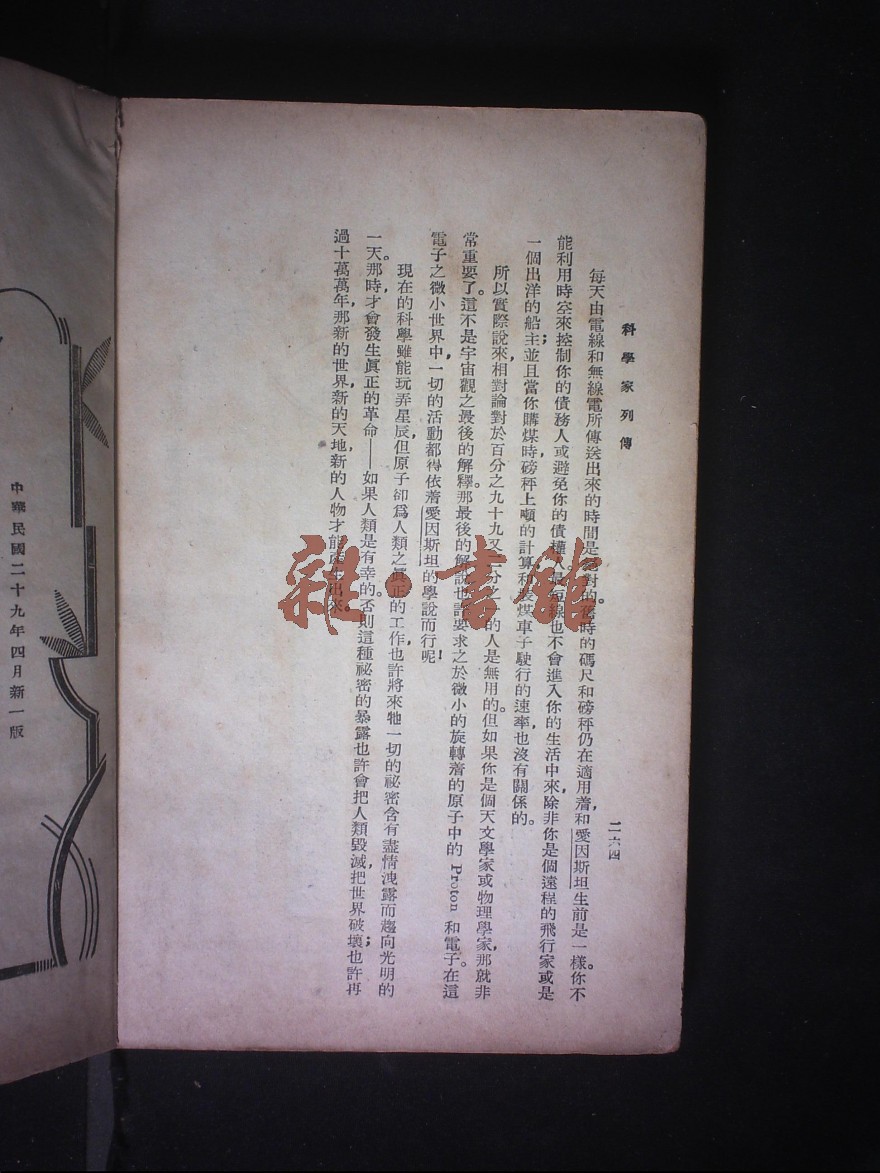 科學家列傳
二六四
每天由電線和無線電所傳送出來的時間是對的。舊時的碼尺和磅秤仍在適用着，和愛因斯坦生前是一樣。你不
能利用時空來控制你的債務人或避免你的債權人。最短線也不會進入你的生活中來，除非你是個遠程的飛行家或是
一個出洋的船主；並且當你購煤時磅秤上噸的計算和裝煤車子駛行的速率也沒有關係的。
所以實際說來，相對論對於百分之九十九又二分之一的人是無用的。但如果你是個天文學家或物理學家，那就非
常重要了。這不是宇宙觀之最後的解釋。那最後的解說也許要求之於微小的旋轉着的原子中的 Proton 和電子。在這
電子之微小世界中，一切的活動都得依着愛因斯坦的學說而行呢！
現在的科學雖能玩弄星辰，但原子卻爲人類之眞正的工作，也許將來牠一切的祕密含有盡情洩露而趨向光明的
一天。那時才會發生眞正的革命——如果人類是有幸的。否則這種祕密的暴露也許會把人類毀滅，把世界破壞；也許再
過十萬萬年，那新的世界，新的天地，新的人物才能產生出來。
雜·書館
中華民國二十九年四月新一版